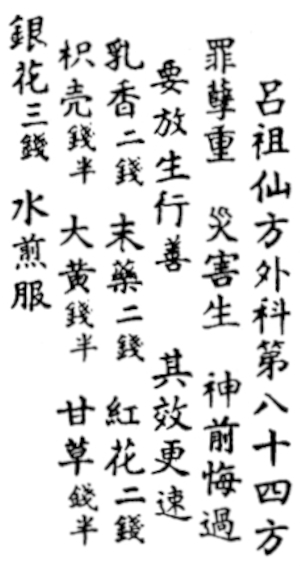 呂祖仙方外科第八十四方
罪孽重 災害生 神前悔過
要放生行善 其效更速
乳香二錢 末藥二錢 紅花二錢
枳壳錢半 大黃錢半 甘草錢半
銀花三錢 水煎服